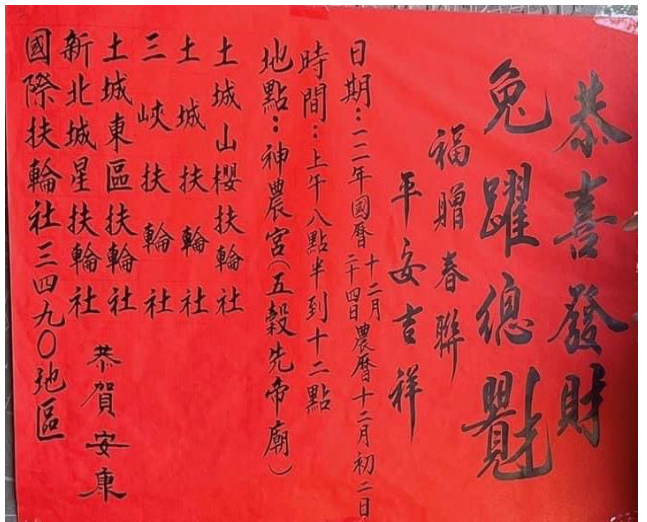 恭喜發財
兔躍總
福贈春聯
平安吉祥
日期：一一一年國曆十二月二十四日農曆十二月初二日
時間：上午八點半到十二點
地點：神農宮（五穀先帝廟）
土城山櫻扶輪社
土城扶輪社
三峽扶輪社
土城東區扶輪社
新北城星扶輪社
國際扶輪社三四九〇地區
恭賀安康